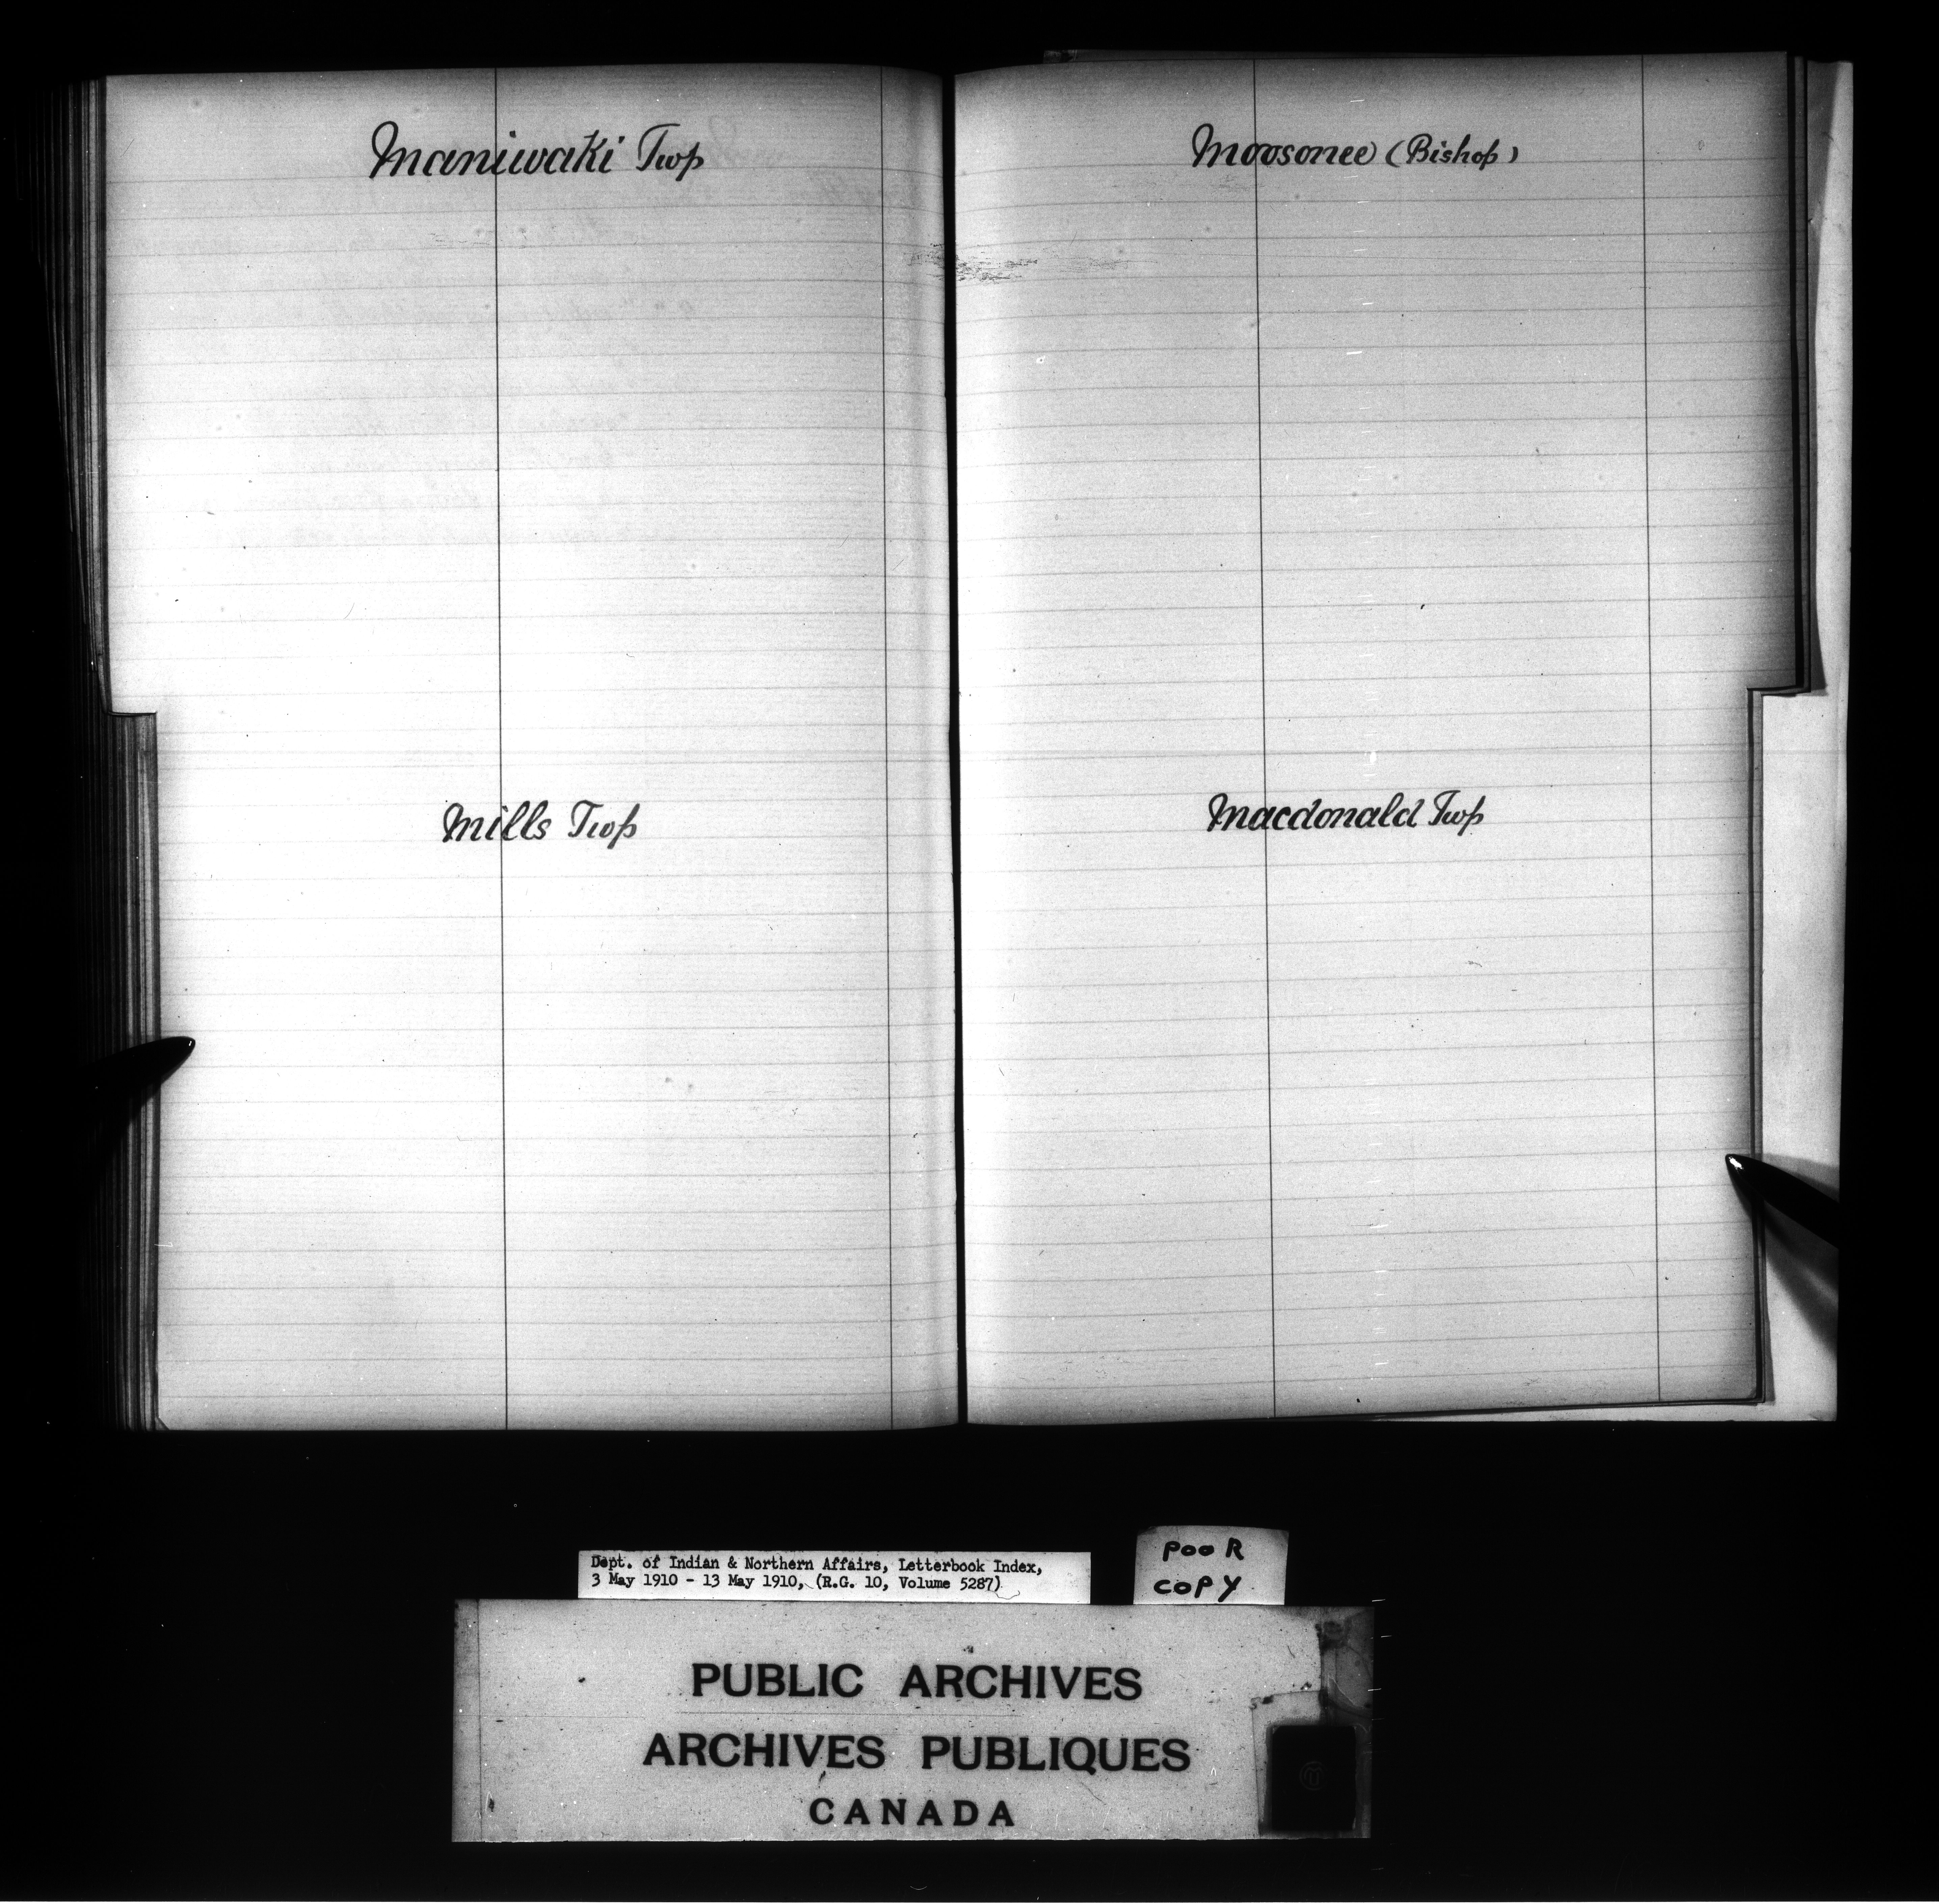 Maniwaki Twp
Mills Twp
Moosonee (Bishop)
Macdonald Twp
Dept. of Indian & Northern Affairs, Letterbook Index,
3 May 1910 - 13 May 1910, (R.G. 10, Volume 5287)
POOR
COPY
PUBLIC ARCHIVES
ARCHIVES PUBLIQUES
CANADA